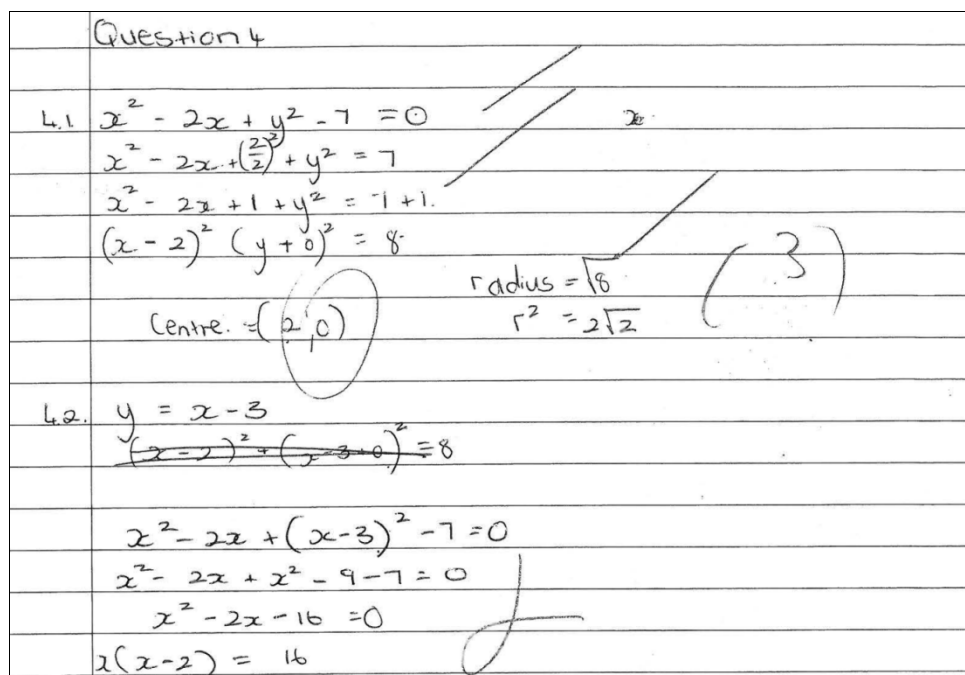 Question 4
4.1 x² - 2x + y² - 7 = 0
x
x² - 2x + (2/2)² + y² = 7
x² - 2x + 1 + y² = 7 + 1.
(x - 2)² (y + 0)² = 8
radius = √8
(3)
Centre. = (2, 0)
r² = 2√2
4.2. y = x - 3
(x - 2)² + (x - 3 + 0)² = 8
x² - 2x + (x - 3)² - 7 = 0
x² - 2x + x² - 9 - 7 = 0
x² - 2x - 16 = 0
x(x - 2) = 16